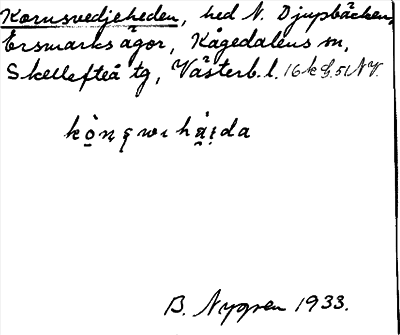 Kornsvedjeheden, hed N. Djupbäcken,
Ersmarks ägor, Kågedalens sn,
Skellefteå tg, Västerb. l. 16 k
B. Nygren 1933.